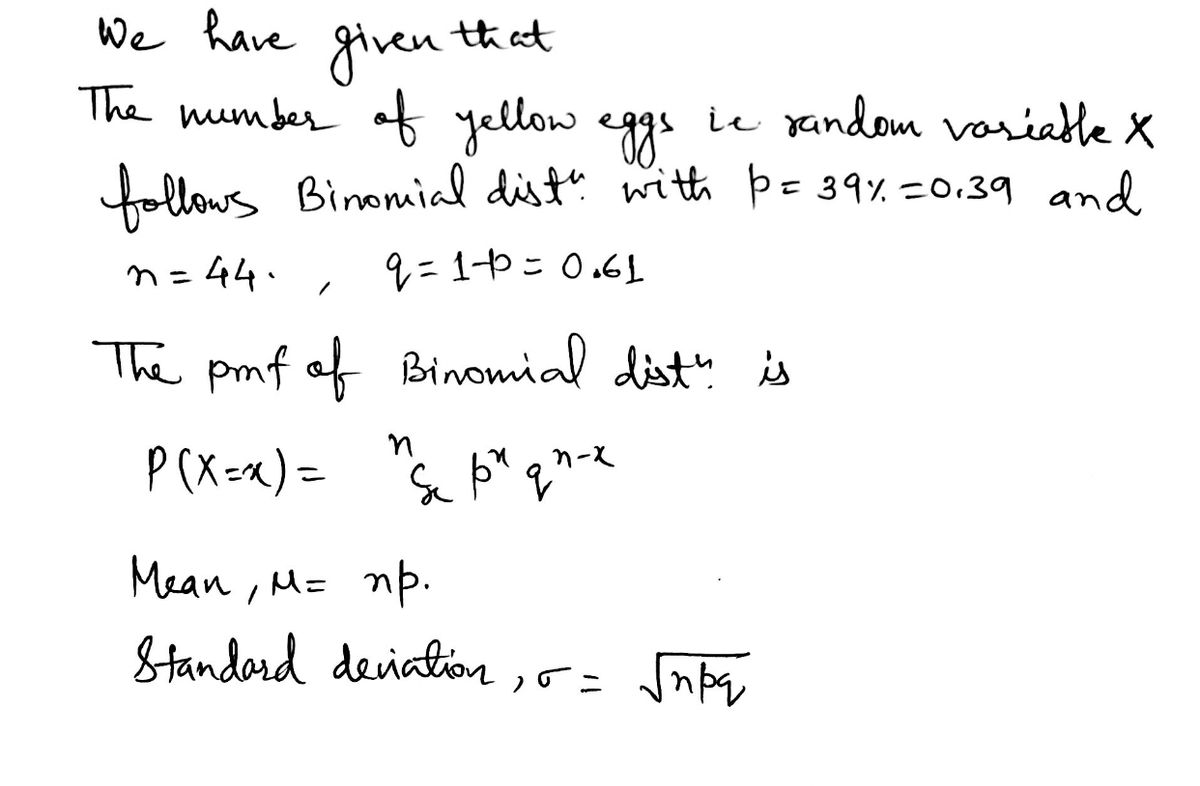 We have given that
The number of yellow eggs ie random variable X
follows Binomial distⁿ. with p = 39% = 0.39 and
n = 44. , q = 1-p = 0.61
The pmf of Binomial distⁿ. is
P(X=x) = ⁿCₓ pˣ qⁿ⁻ˣ
Mean, μ = np.
Standard deviation, σ = √npq